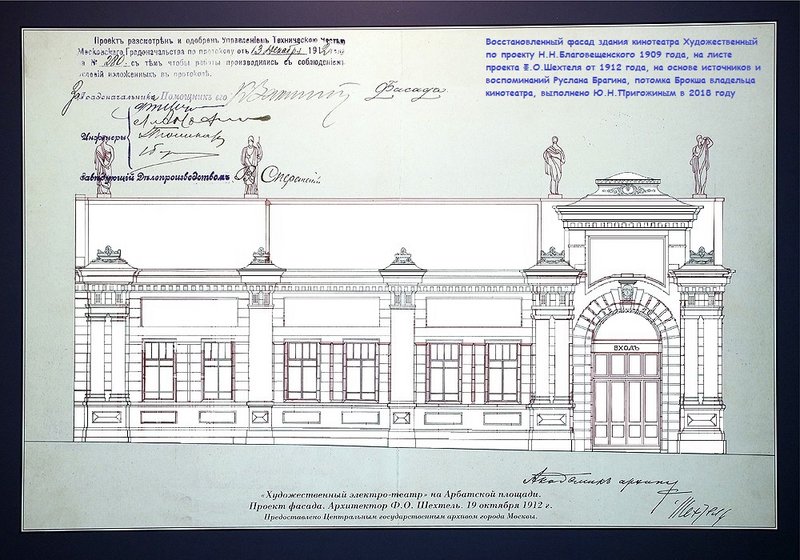 Проектъ разсмотрѣнъ и одобренъ Управленіемъ Техническою Частью
Московскаго Градоначальства по протоколу отъ 13 Декабря 1912
за № 280. съ тѣмъ чтобы работы производились съ соблюденіемъ
условій изложенныхъ въ протоколѣ.
Восстановленный фасад здания кинотеатра Художественный
по проекту Н.Н.Благовещенского 1909 года, на листе
проекта Ф.О.Шехтеля от 1912 года, на основе источников и
воспоминаний Руслана Брагина, потомка Брокша владельца
кинотеатра, выполнено Ю.Н.Пригожиным в 2018 году
Градоначальника Помощникъ его
Фасадъ
Инженеры
Завѣдующій Дѣлопроизводствомъ
ВХОДЪ
Академикъ архит
Шехтель
«Художественный электро-театр» на Арбатской площади.
Проект фасада. Архитектор Ф.О. Шехтель. 19 октября 1912 г.
Предоставлено Центральным государственным архивом города Москвы.